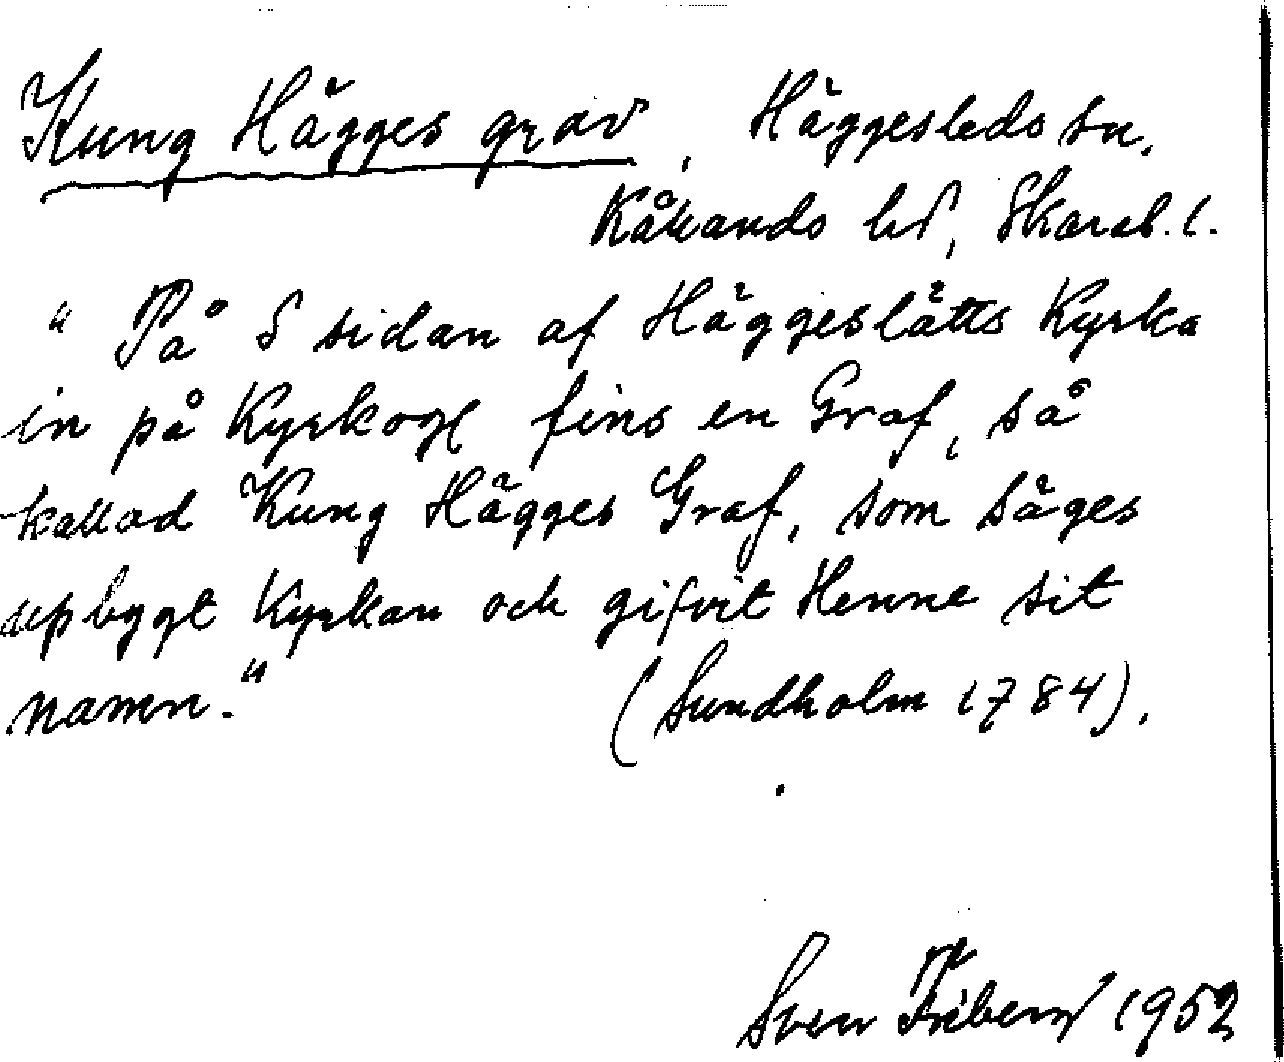 Kung Hägges grav, Häggesleds sn.
Kållands hd, Skarab. l.
"På S sidan af Häggeslätts Kyrka
in på Kyrkog fins en Graf, så
kallad Kung Hägges Graf, som säges
upbygt Kyrkan och gifvit Henne sit
namn." (Sundholm 1784).
Sven Friberg 1952